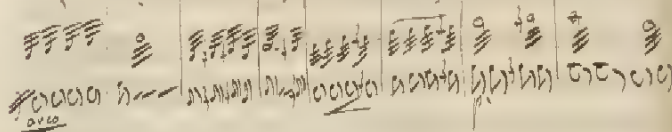 arco
p.